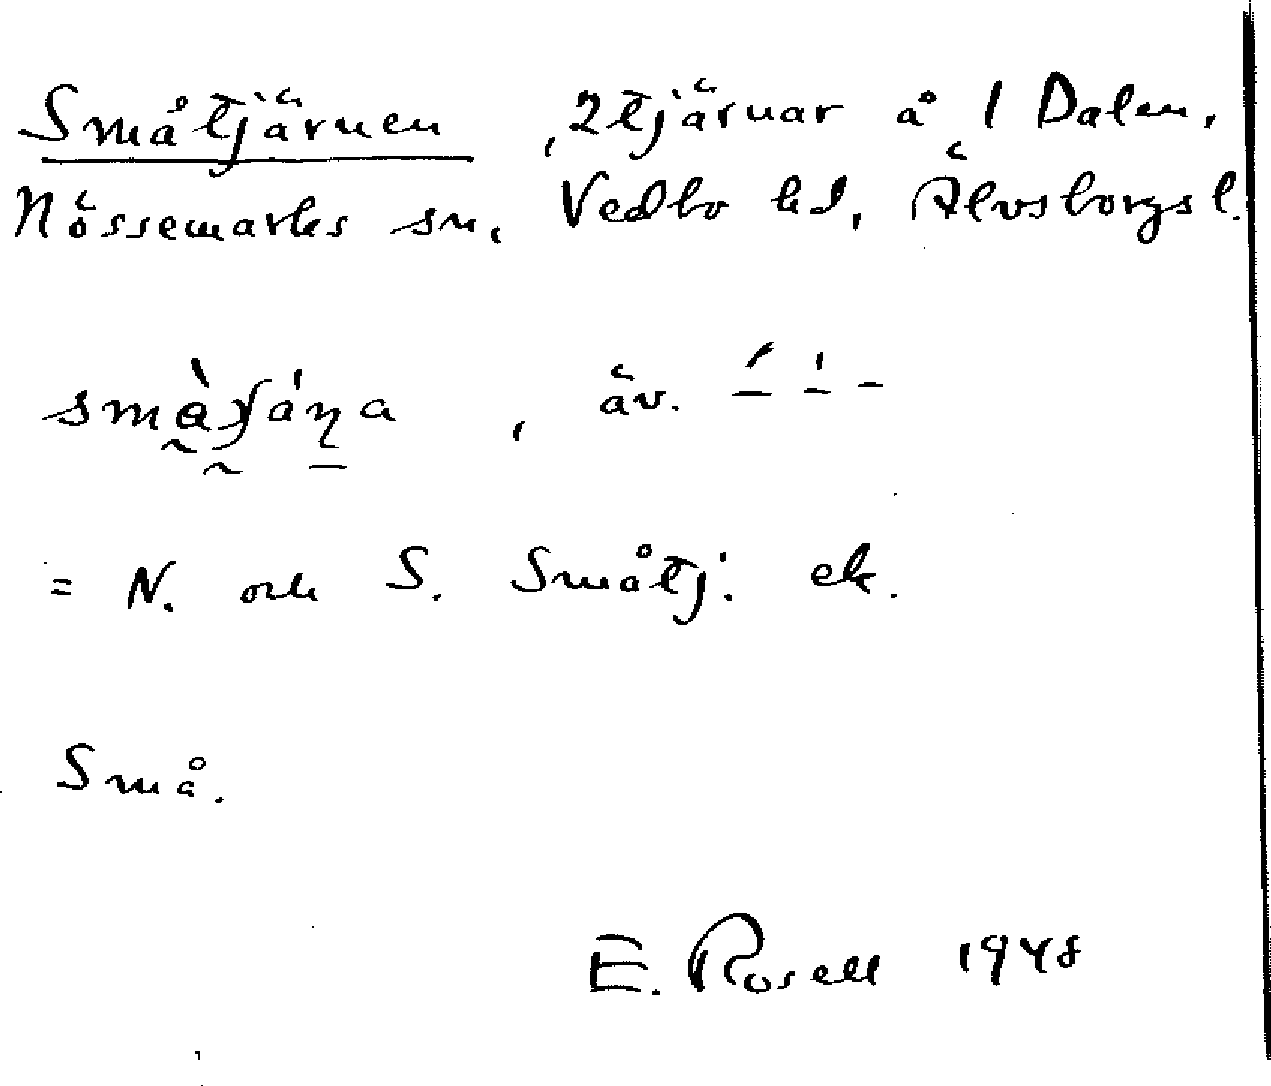 Småtjärnen , 2 tjärnar å 1 Dalen,
Nössemarks sn, Vedbo hd, Älvsborgs l.
, äv.
= N. och S. Småtj: ek.
Små.
E. Rosell 1948